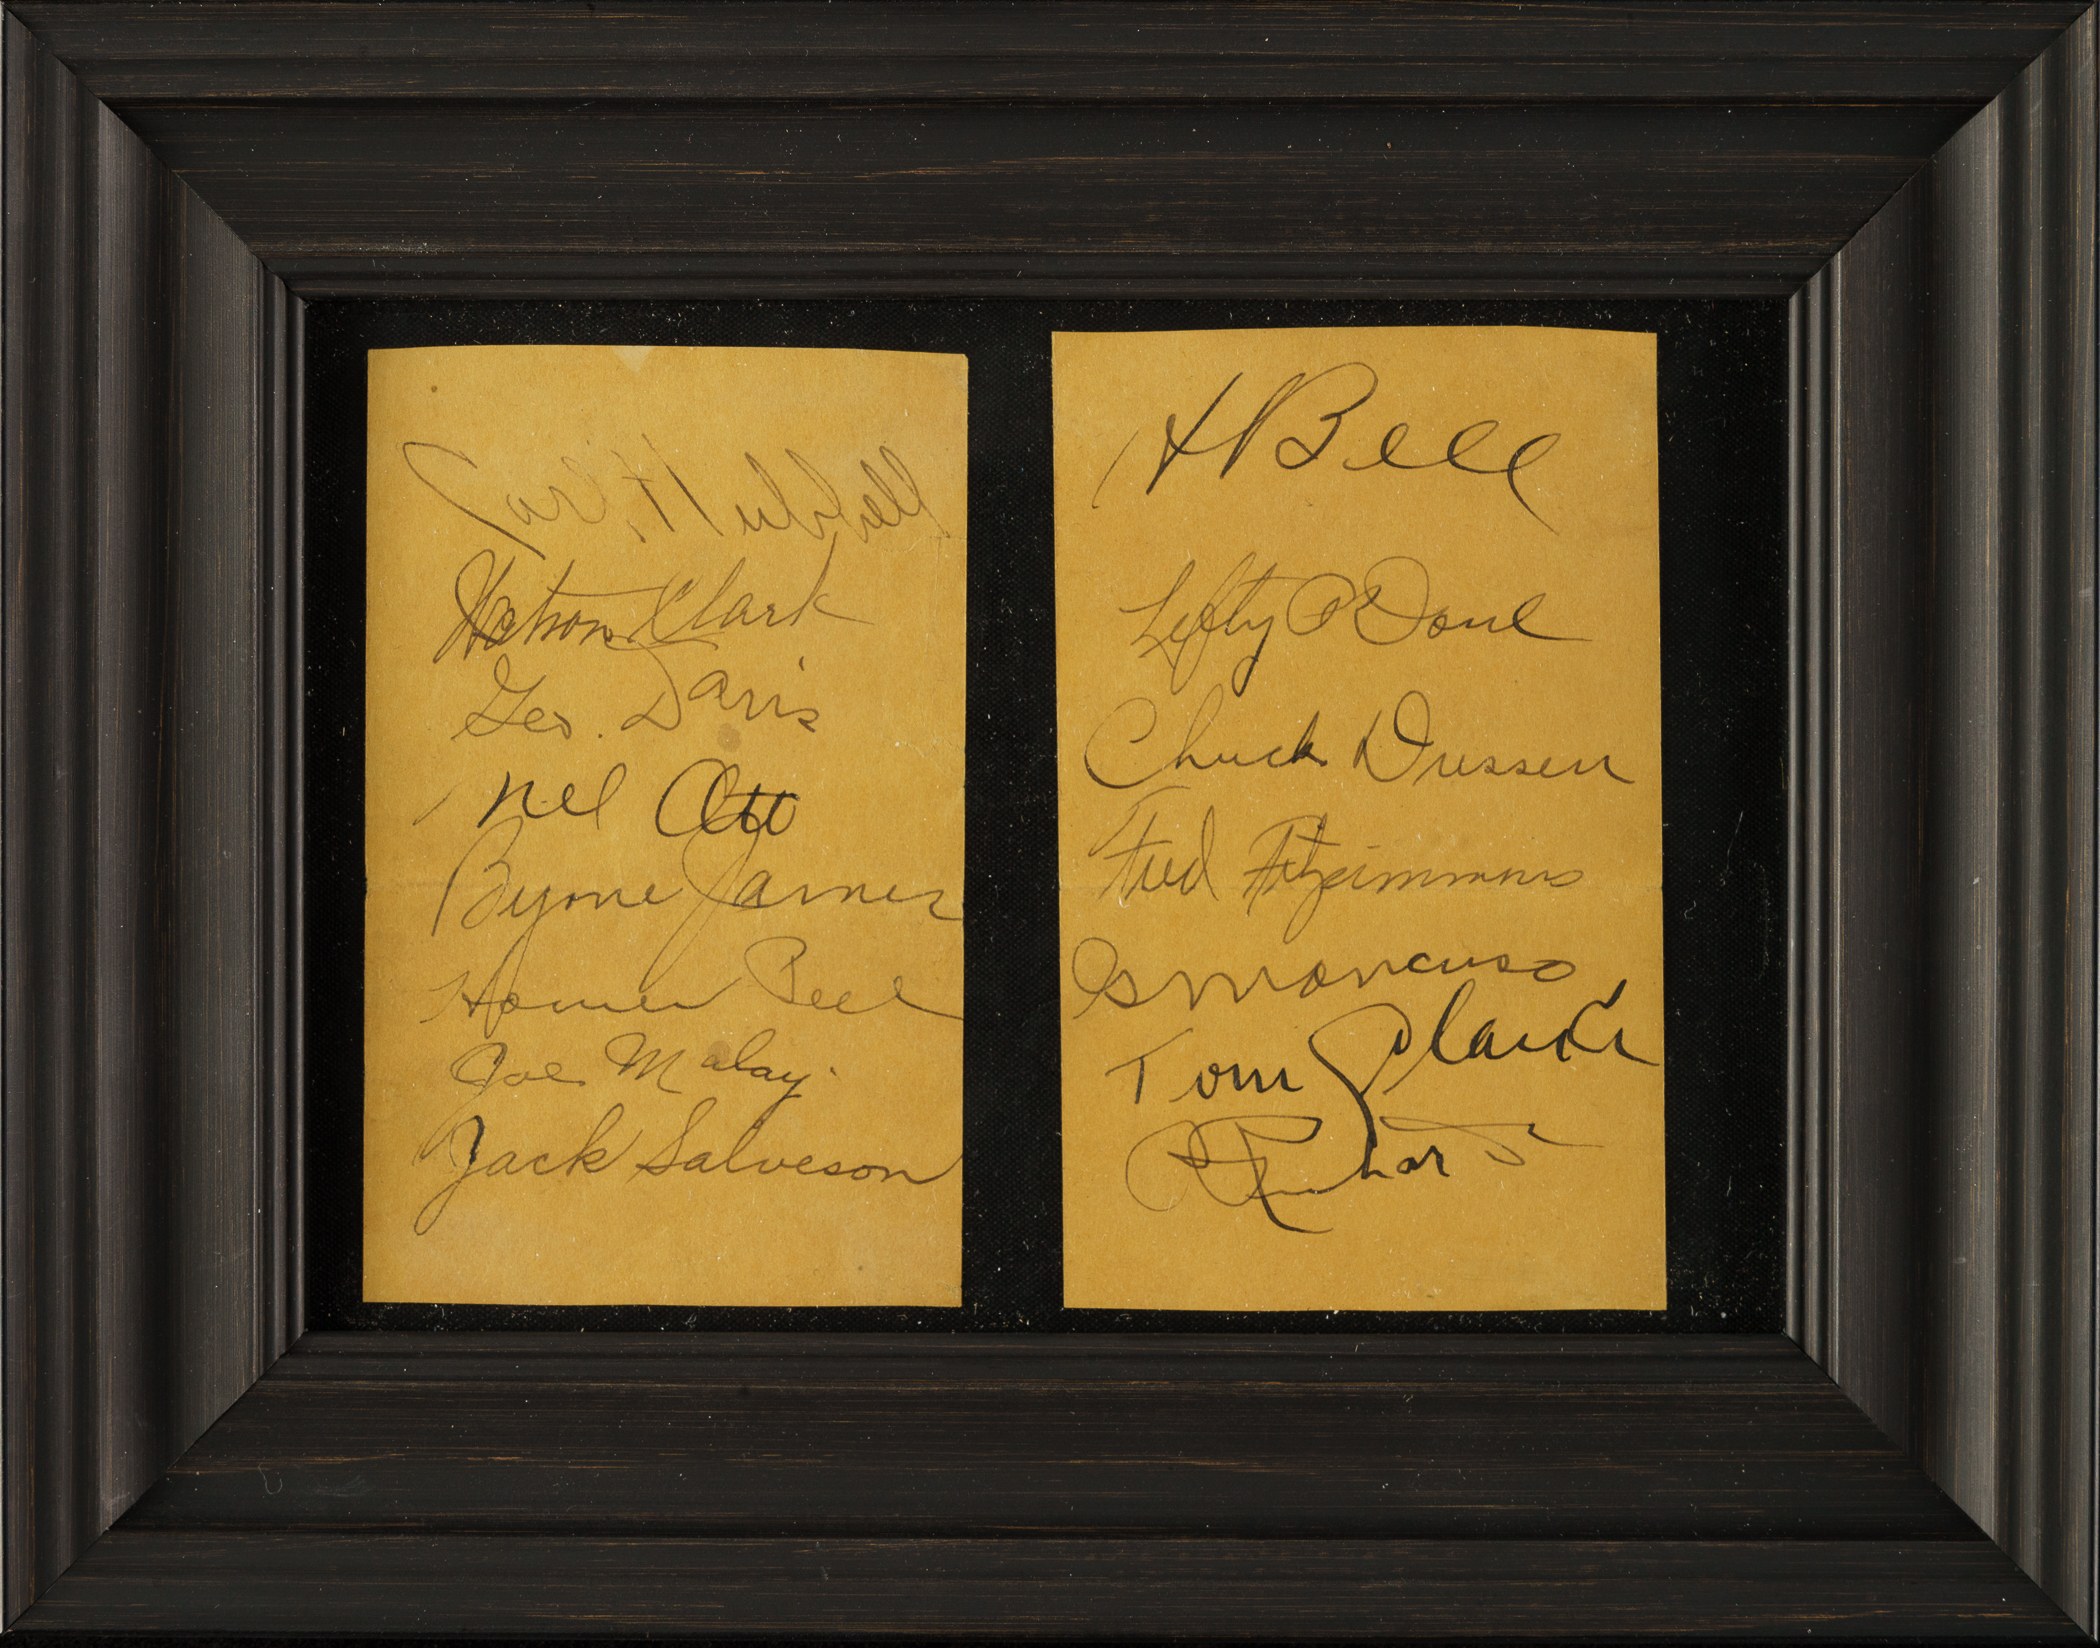 Carl Hubbell
Watson Clark
Geo. Davis
Mel Ott
Byrne James
Homer Peel
Joe Malay
Jack Salveson
H Bell
Lefty O'Doul
Chuck Dressen
Fred Fitzsimmons
G Mancuso
Tom Clarke